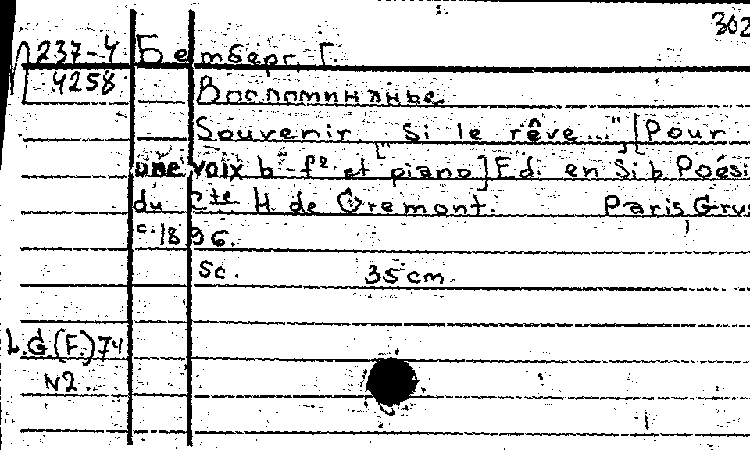 302
237-4 Бемберг, Г.
4258 Воспоминанье.
Souvenir. "Si le rêve..." [Pour
une voix b-f² et piano] Ed. en Si b. Poési
du Cte H. de Gremont. Paris Grus
c.1896.
Sc. 35 cm.
L.G.(F.)74
N2.